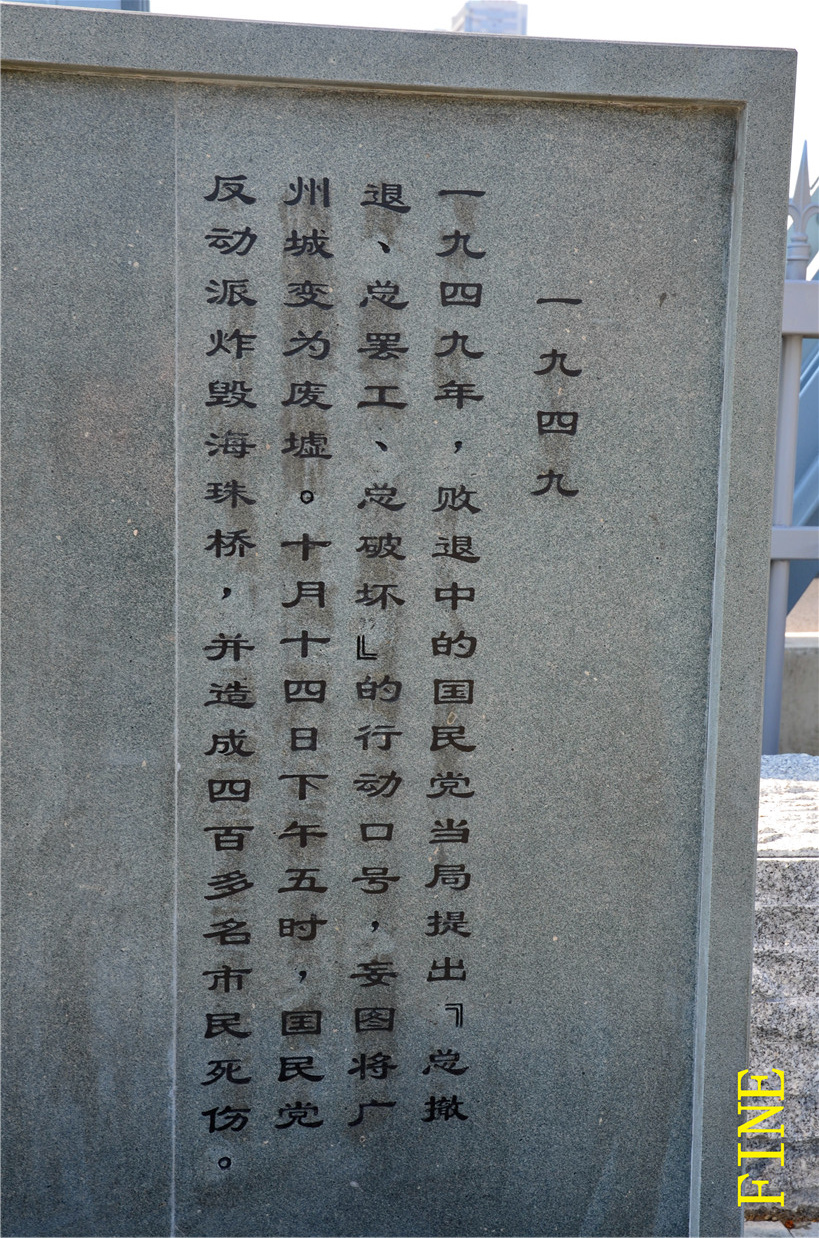 一九四九
一九四九年，败退中的国民党当局提出『总撤
退、总罢工、总破坏』的行动口号，妄图将广
州城变为废墟。十月十四日下午五时，国民党
反动派炸毁海珠桥，并造成四百多名市民死伤。
FINE